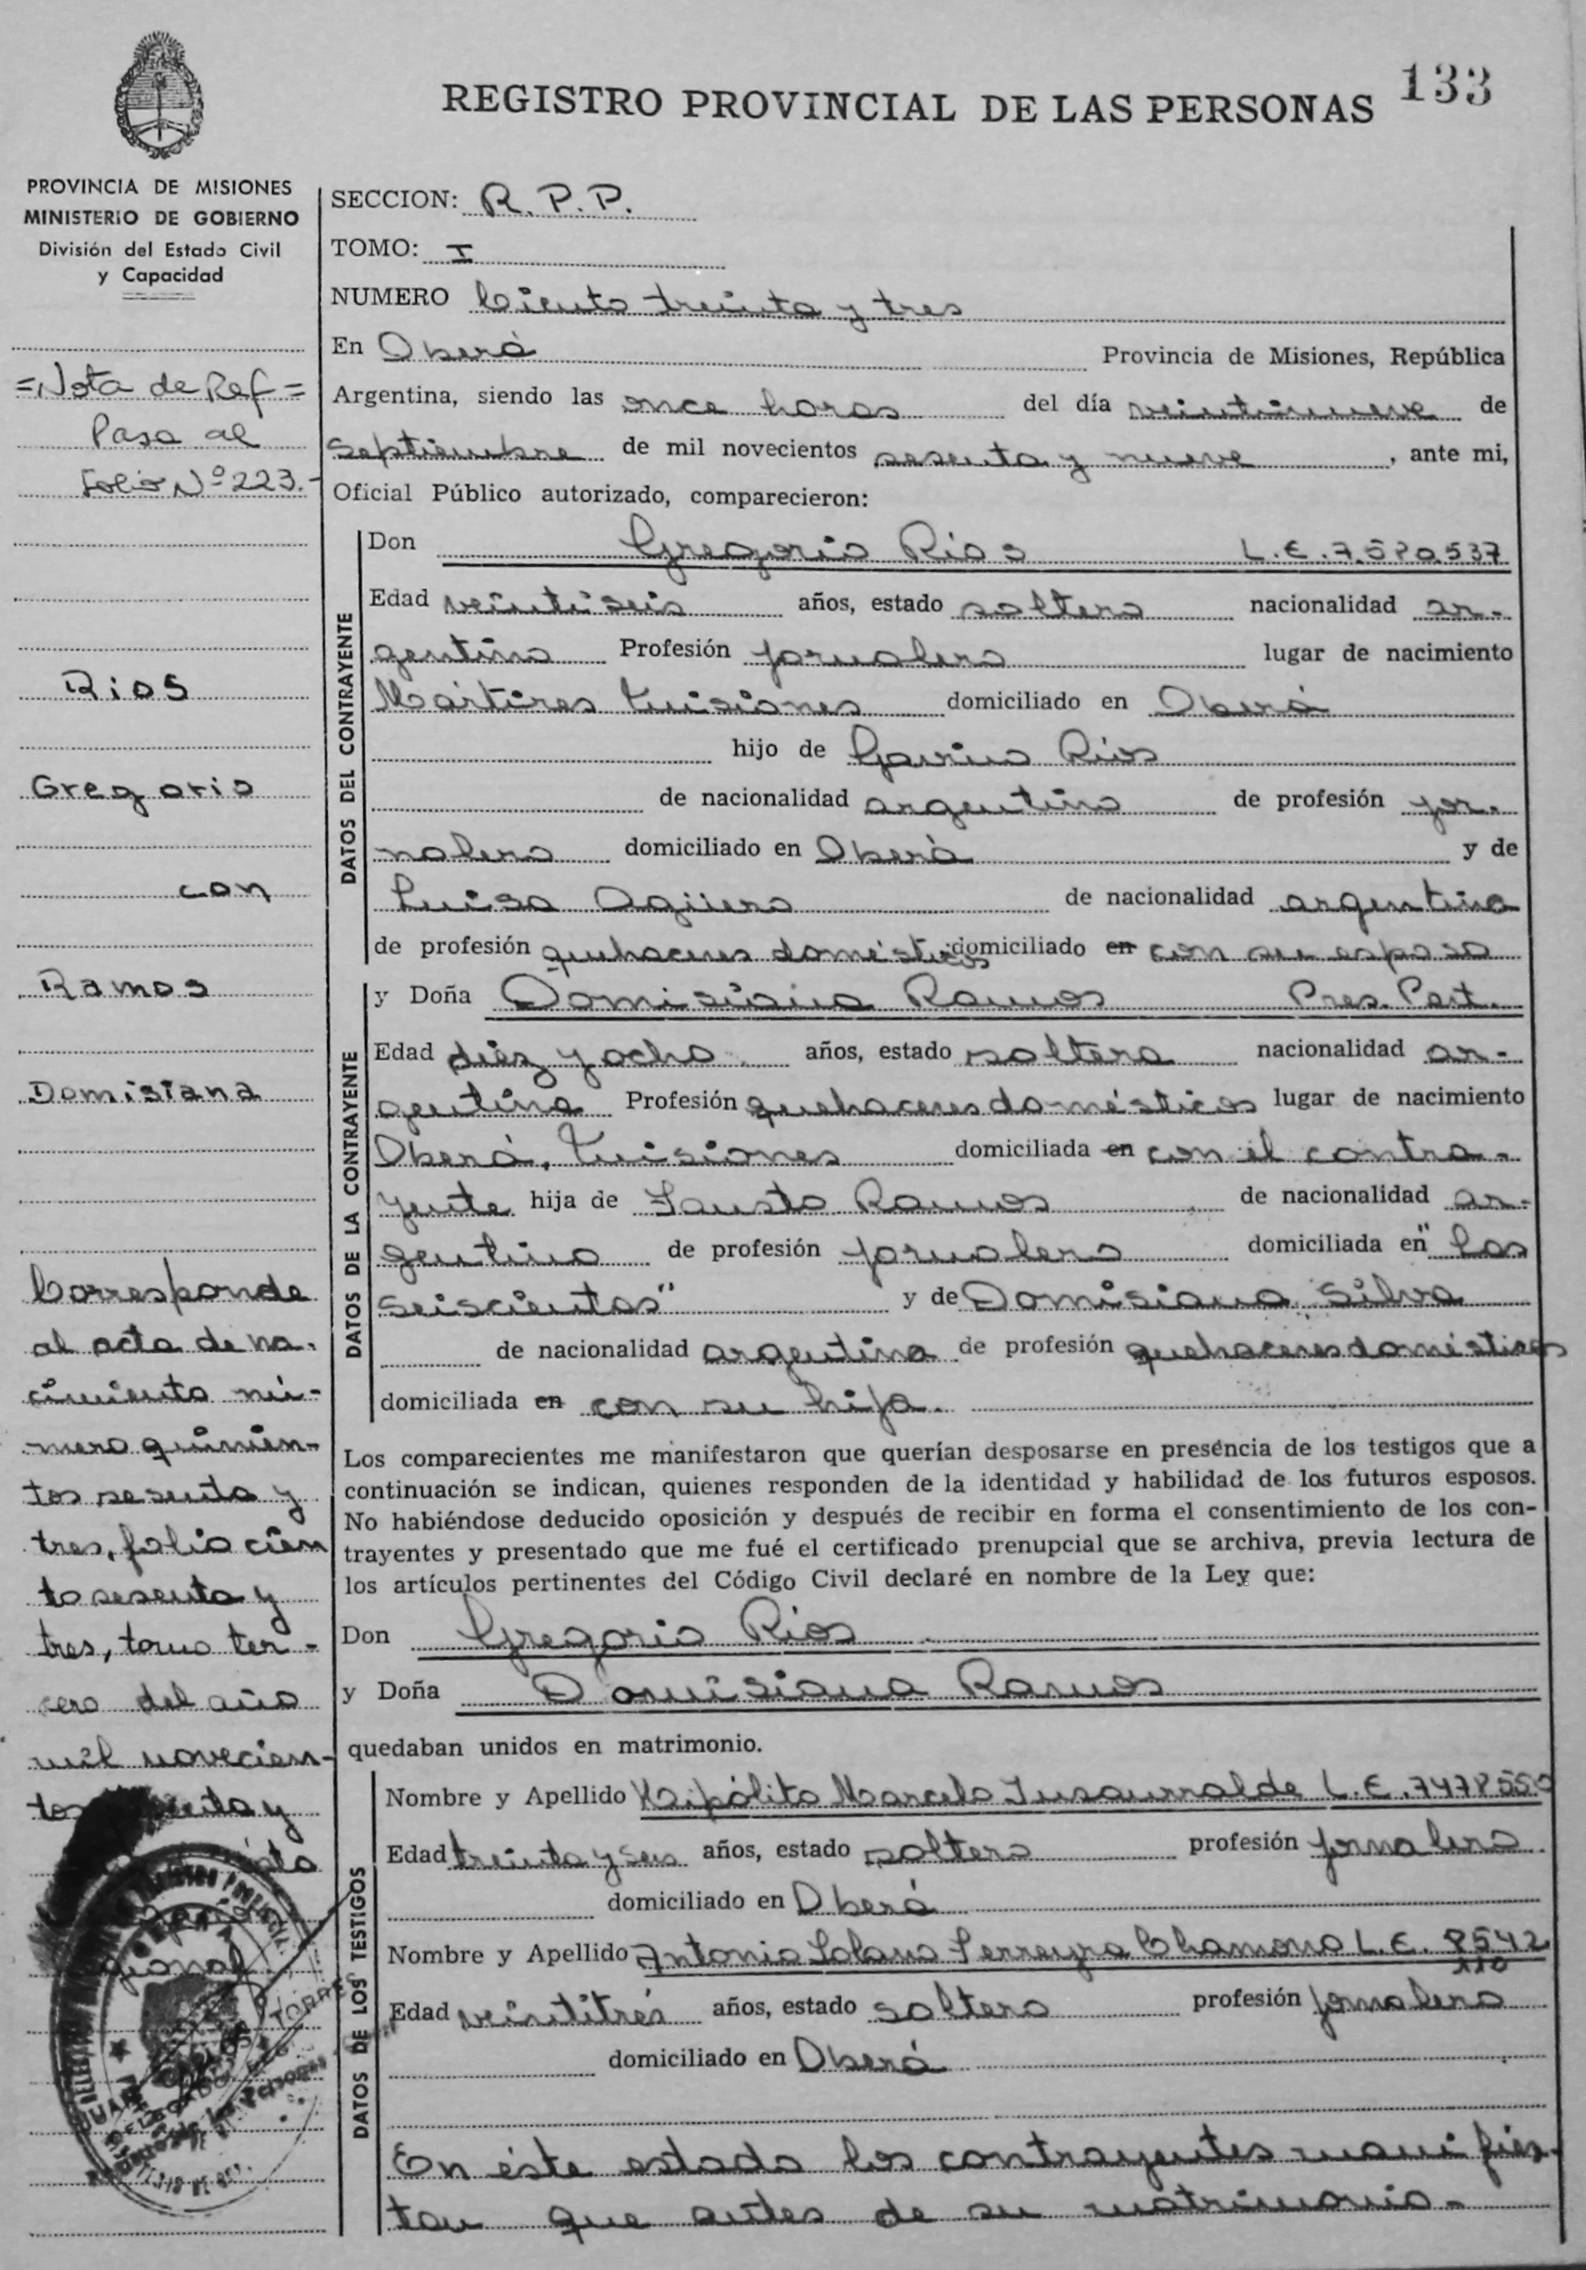 133
REGISTRO PROVINCIAL DE LAS PERSONAS
PROVINCIA DE MISIONES
MINISTERIO DE GOBIERNO
División del Estado Civil
y Capacidad
=Nota de Ref=
Pasa al
Folio Nº 223.-
Rios
Gregorio
con
Ramos
Domisiana
Corresponde
al acta de na-
cimiento nú-
mero quinien-
tos sesenta y
tres, folio cien
to sesenta y
tres, tomo ter-
cero del año
mil novecien-
tos y
SECCION: R.P.P.
TOMO: I
NUMERO Ciento treinta y tres
En Oberá Provincia de Misiones, República
Argentina, siendo las once horas del día veintinueve de
septiembre de mil novecientos sesenta y nueve, ante mi,
Oficial Público autorizado, comparecieron:
DATOS DEL CONTRAYENTE
Don Gregorio Rios L.E. 7.580.537
Edad veintiseis años, estado soltero nacionalidad ar-
gentino Profesión jornalero lugar de nacimiento
Mártires Misiones domiciliado en Oberá
hijo de Gavino Rios
de nacionalidad argentino de profesión jor-
nalero domiciliado en Oberá y de
Luisa Agüero de nacionalidad argentina
de profesión quehaceres domésticos domiciliado en con su esposo
DATOS DE LA CONTRAYENTE
y Doña Domisiana Ramos Pres. Part.
Edad diez y ocho años, estado soltera nacionalidad ar-
gentina Profesión quehaceres domésticos lugar de nacimiento
Oberá, Misiones domiciliada en con el contra-
yente hija de Fausto Ramos de nacionalidad ar-
gentino de profesión jornalero domiciliada en "Las
Seiscientas" y de Domisiana Silva
de nacionalidad argentina de profesión quehaceres domésticos
domiciliada en con su hija.
Los comparecientes me manifestaron que querían desposarse en preséncia de los testigos que a
continuación se indican, quienes responden de la identidad y habilidad de los futuros esposos.
No habiéndose deducido oposición y después de recibir en forma el consentimiento de los con-
trayentes y presentado que me fué el certificado prenupcial que se archiva, previa lectura de
los artículos pertinentes del Código Civil declaré en nombre de la Ley que:
Don Gregorio Rios
y Doña Domisiana Ramos
quedaban unidos en matrimonio.
DATOS DE LOS TESTIGOS
Nombre y Apellido Hipólito Marcelo Insaurralde L.E. 7478550
Edad treinta y seis años, estado soltero profesión jornalero
domiciliado en Oberá
Nombre y Apellido Antonio Solano Ferreyra Chamorro L.E. 8542
110
Edad veintitrés años, estado soltero profesión jornalero
domiciliado en Oberá
En éste estado los contrayentes manifies-
tan que antes de su matrimonio-